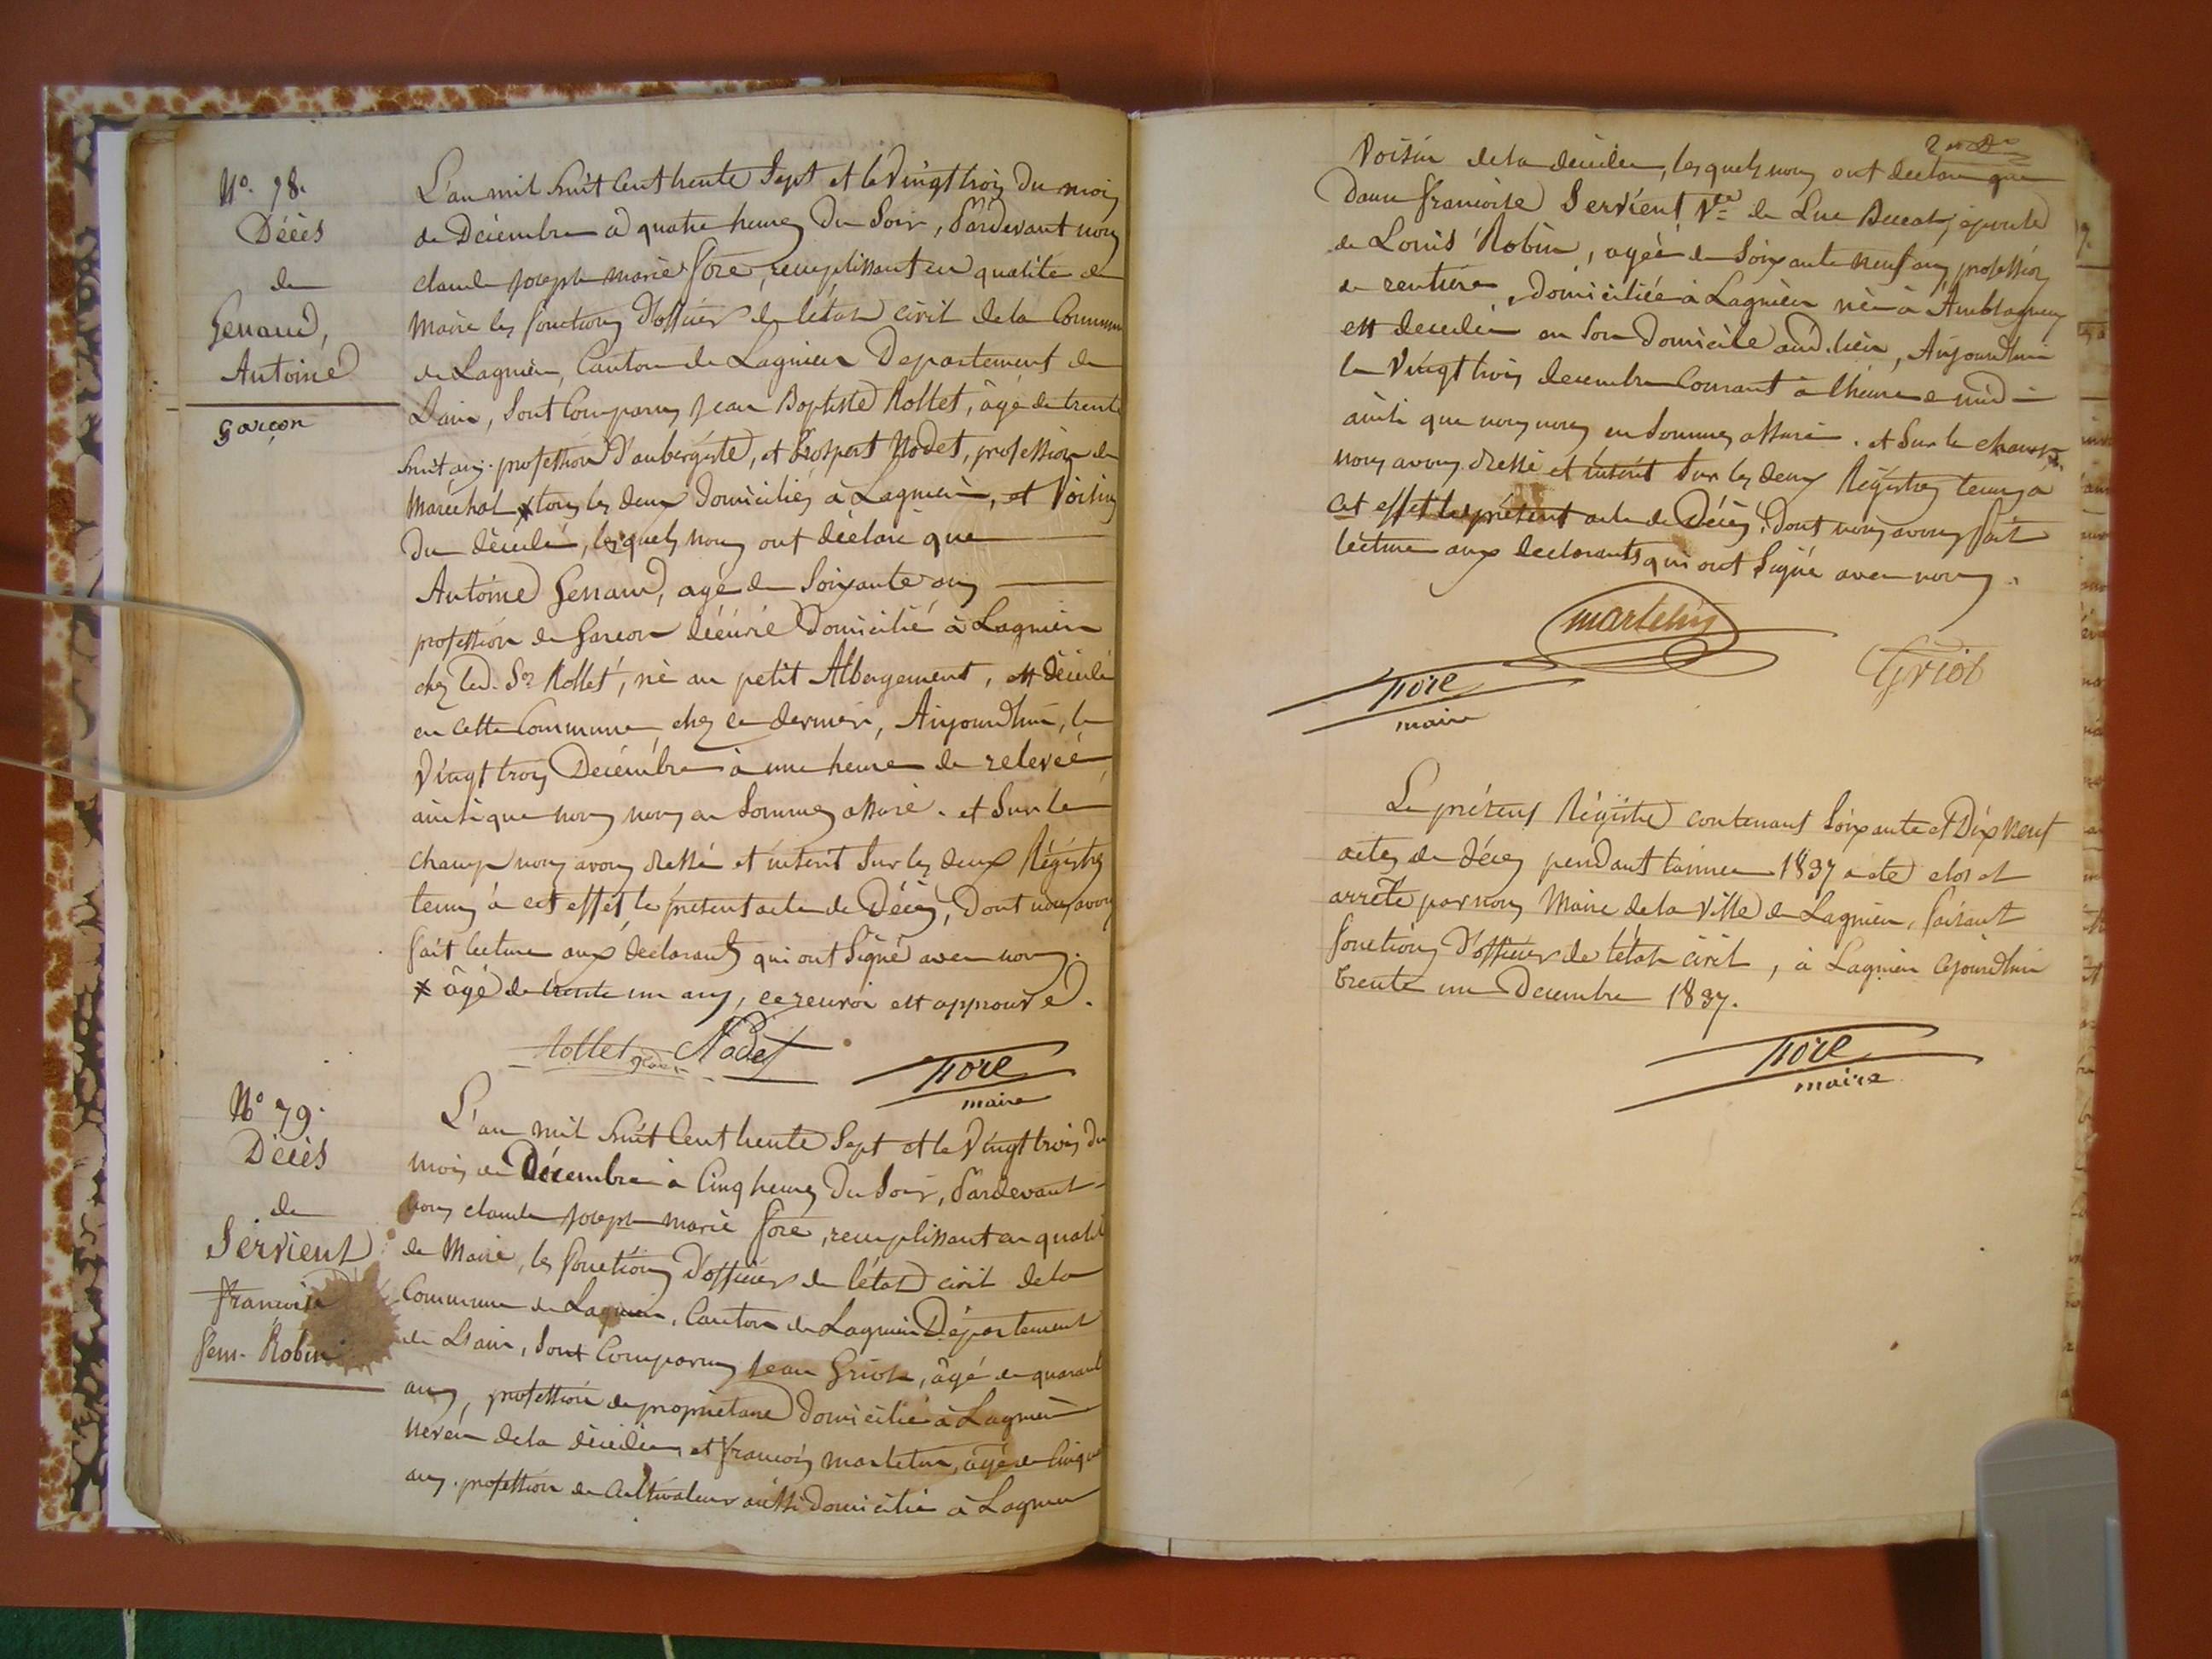 N.° 78.
Décès
de
Genaud,
Antoine
garçon
L'an mil huit Cent trente Sept et le Vingt trois du mois
de Décembre à quatre heures du Soir, Pardevant nous
claude joseph marie fore, remplissant en qualité de
Maire les fonctions d'officier de l'état civil de la Commune
de Lagnieu, Canton de Lagnieu Departement de
L'ain, Sont Comparus jean Baptiste Rollet, âgé de trente
huit ans. profession d'aubergiste, et Prospert Nodet, profession de
Maréchal * tous les deux domiciliés à Lagnieu, et Voisins
du décédé, lesquels nous ont déclaré que
Antoine Genaud, agé de Soixante ans
profession de Garcon décuré Domicilié à Lagnieu
chez led. Sr Rollet, né au petit Albergement, est décédé
en cette Commune, chez ce dernier, Aujourdhui, le
Vingt trois Décémbre à une heure de relevéé
ainsi que nous nous en Sommes assuré. et Sur le
champ nous avons dressé et inscrit Sur les deux Régistres
tenus à cet effet le présent acte de Décès, Dont nous avons
fait lecture aux declarants qui ont Signé avec nous.
* âgé de trente un ans, ce renvoi est approuvé.
Rollet Nodet
fore
maire
N° 79.
Décès
de
Servient
francoise
fem. Robin
L'an mil huit Cent trente Sept et le Vingt trois du
mois de Décembre à Cinq heures du Soir, Pardevant
nous claude joseph marie fore, remplissant en qualité
de Maire, les fonctions d'officier de l'état civil de la
Commune de Lagnieu, Canton de Lagnieu Département
de L'ain, Sont Comparus jean Griot, âgé de quarante
ans, profession de propriétaire domicilié à Lagnieu
neveu de la décédée, et francois martelin, âgé de Cinquante
ans. profession de Cultivateur aussi domicilié à Lagnieu
Voisin de la décédée, lesquels nous ont declaré que
Dame francoise Servient Vve de Luc épouse
de Louis Robin, agéé de Soixante neuf ans profession
de rentiére, domiciliéé à Lagnieu née à Amblagnieu
est decedéé en Son Domicile aud. lieu, Aujourdhui
le Vingt trois decembre Courant à l'heure de midi
ainsi que nous nous en Sommes assuré. et Sur le champ
nous avons dressé et inscrit Sur les deux Régistres tenus a
cet effet le présent acte de Décès, Dont nous avons fait
lecture aux declarants qui ont Signé avec nous.
martelin
Griot
fore
maire
Le présent Régistre contenant Soixante et Dix neuf
actes de décès pendant l'année 1837 a été clos et
arrêté par nous Maire de la Ville de Lagnieu, faisant
fonctions d'officier de l'état civil, à Lagnieu Cejourdhui
trente un Decembre 1837.
fore
maire